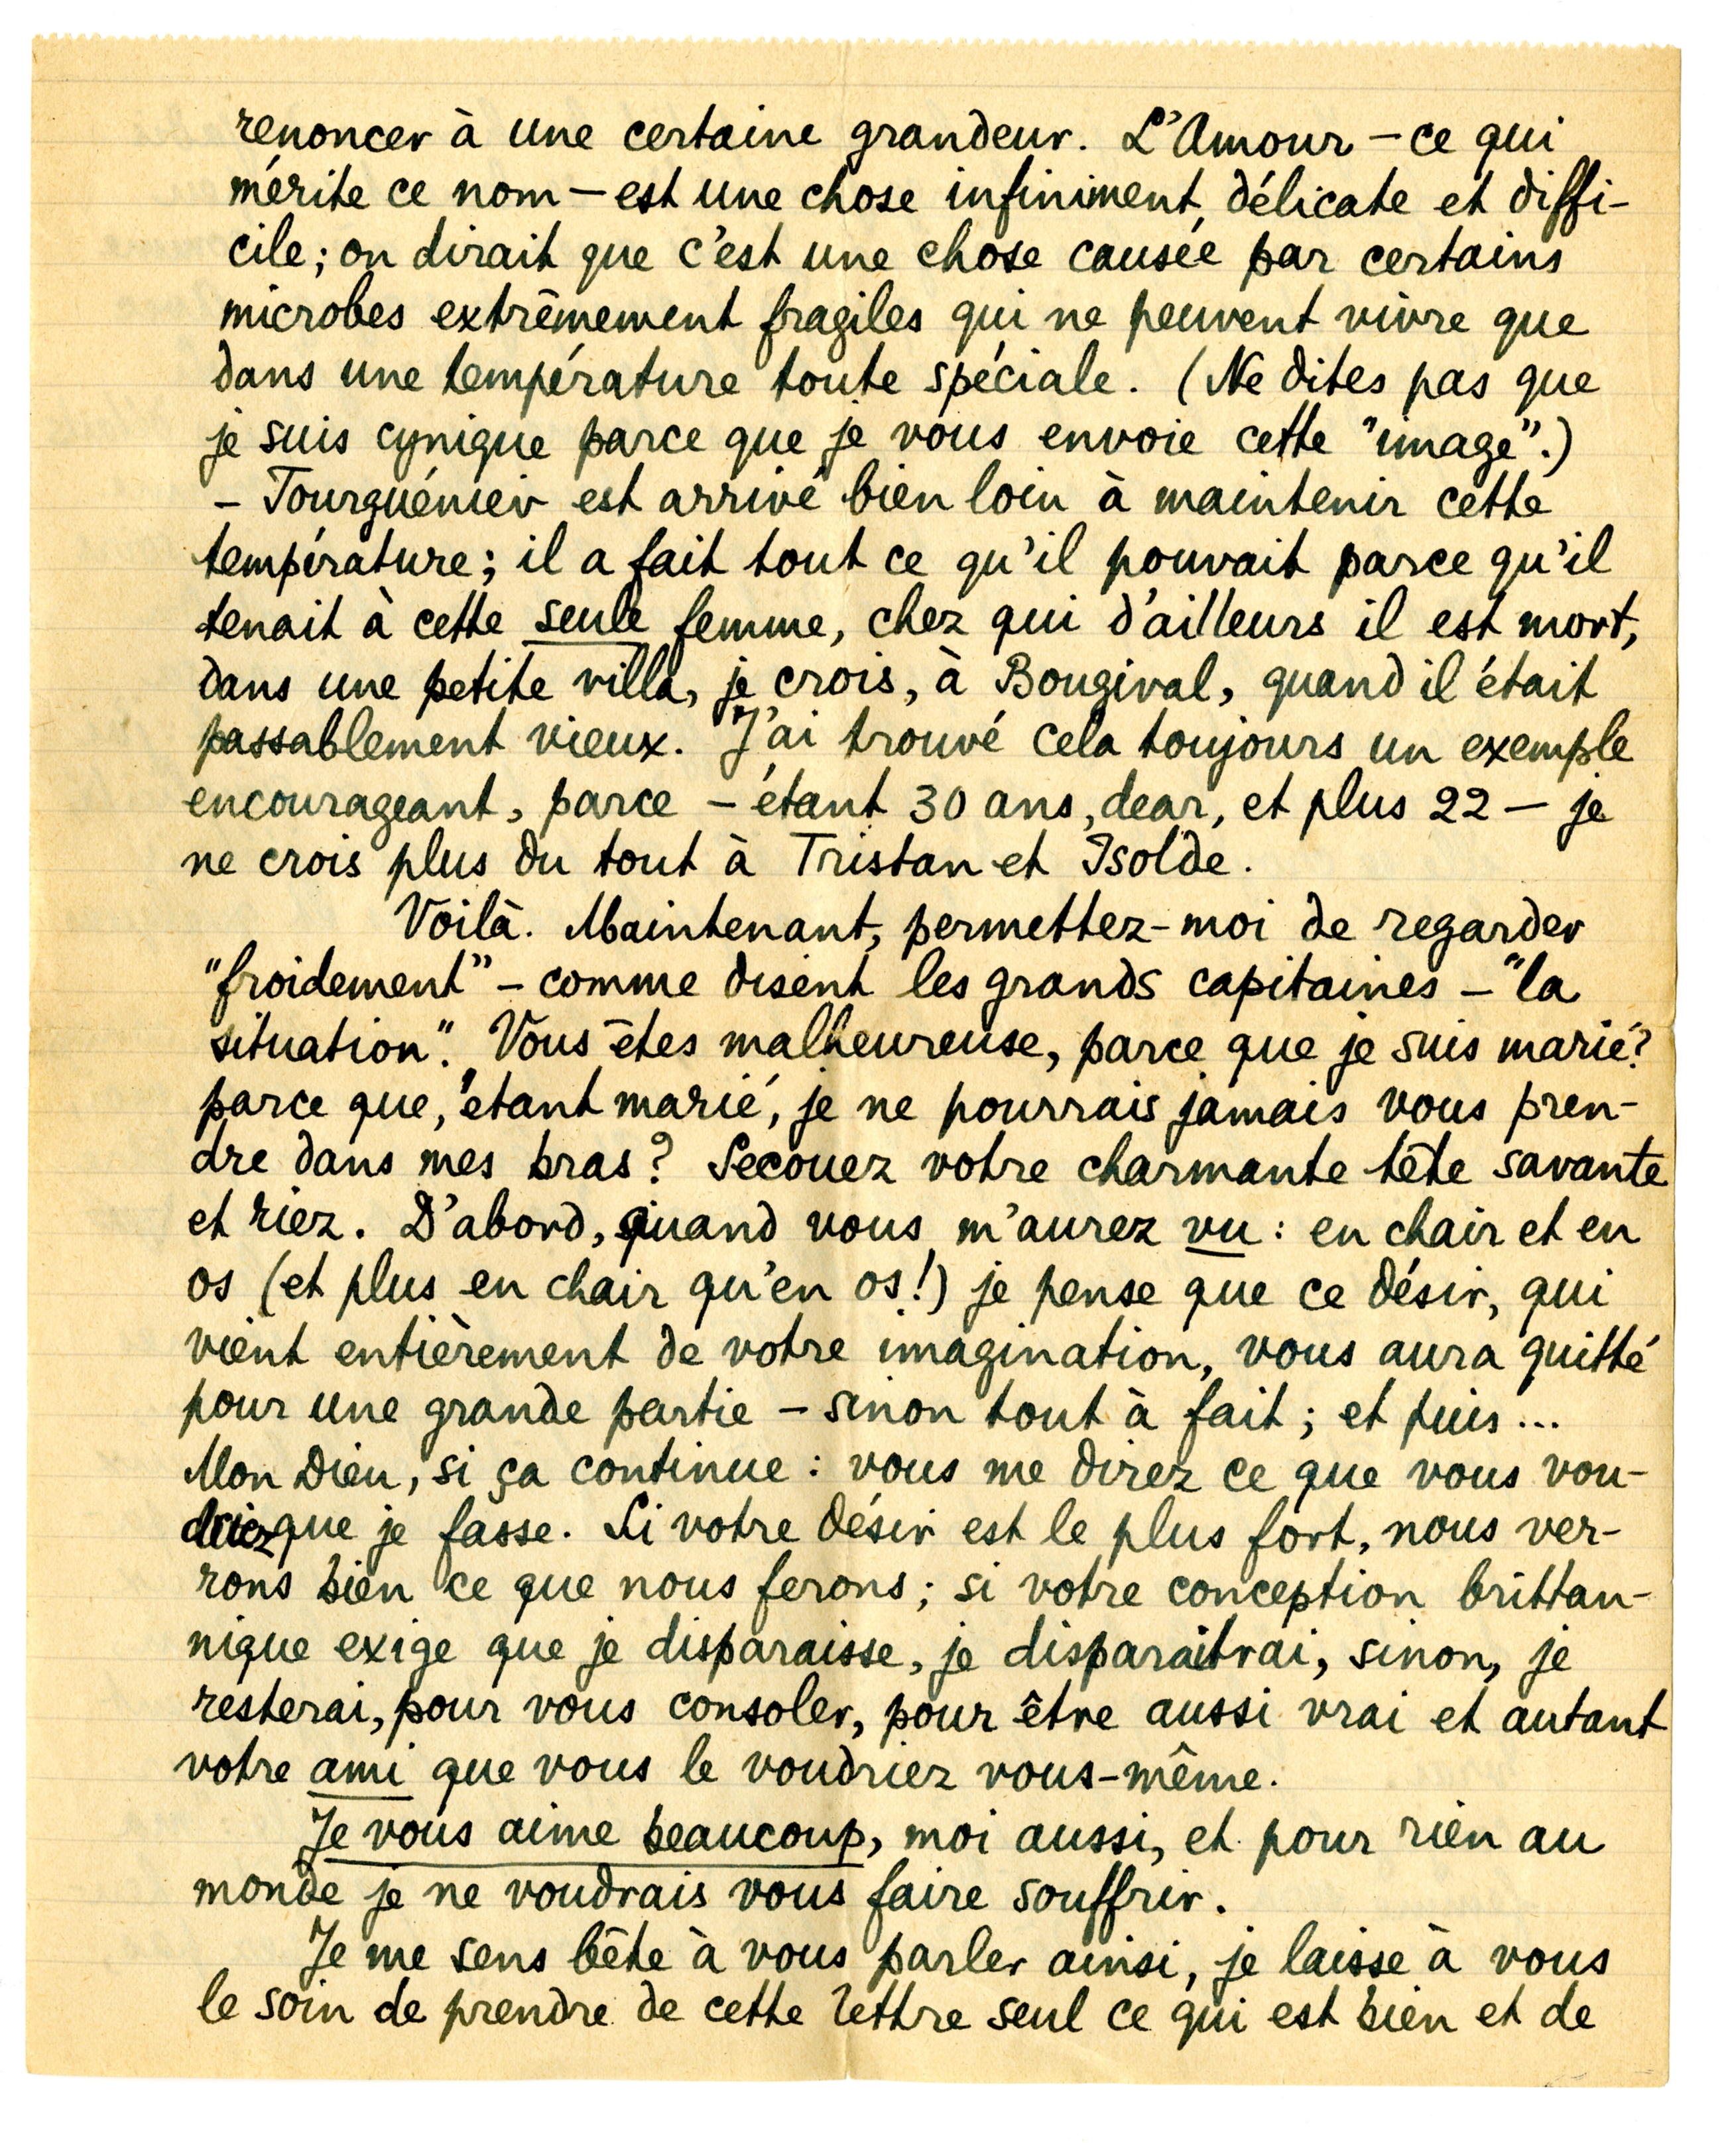 renoncer à une certaine grandeur. L'Amour – ce qui
mérite ce nom – est une chose infiniment délicate et diffi-
cile; on dirait que c'est une chose causée par certains
microbes extrêmement fragiles qui ne peuvent vivre que
dans une température toute spéciale. (Ne dites pas que
je suis cynique parce que je vous envoie cette "image".)
– Tourguéniev est arrivé bien loin à maintenir cette
température; il a fait tout ce qu'il pouvait parce qu'il
tenait à cette seule femme, chez qui d'ailleurs il est mort,
dans une petite villa, je crois, à Bougival, quand il était
passablement vieux. J'ai trouvé cela toujours un exemple
encourageant, parce – étant 30 ans, dear, et plus 22 – je
ne crois plus du tout à Tristan et Isolde.
Voilà. Maintenant, permettez-moi de regarder
"froidement" – comme disent les grands capitaines – "la
situation". Vous êtes malheureuse, parce que je suis marié?
parce que, étant marié, je ne pourrais jamais vous pren-
dre dans mes bras? Secouez votre charmante tête savante
et riez. D'abord, quand vous m'aurez vu: en chair et en
os (et plus en chair qu'en os!) je pense que ce désir, qui
vient entièrement de votre imagination, vous aura quitté
pour une grande partie – sinon tout à fait; et puis...
Mon Dieu, si ça continue: vous me direz ce que vous vou-
driez que je fasse. Si votre désir est le plus fort, nous ver-
rons bien ce que nous ferons; si votre conception brittan-
nique exige que je disparaisse, je disparaîtrai, sinon, je
resterai, pour vous consoler, pour être aussi vrai et autant
votre ami que vous le voudriez vous-même.
Je vous aime beaucoup, moi aussi, et pour rien au
monde je ne voudrais vous faire souffrir.
Je me sens bête à vous parler ainsi, je laisse à vous
le soin de prendre de cette lettre seul ce qui est bien et de